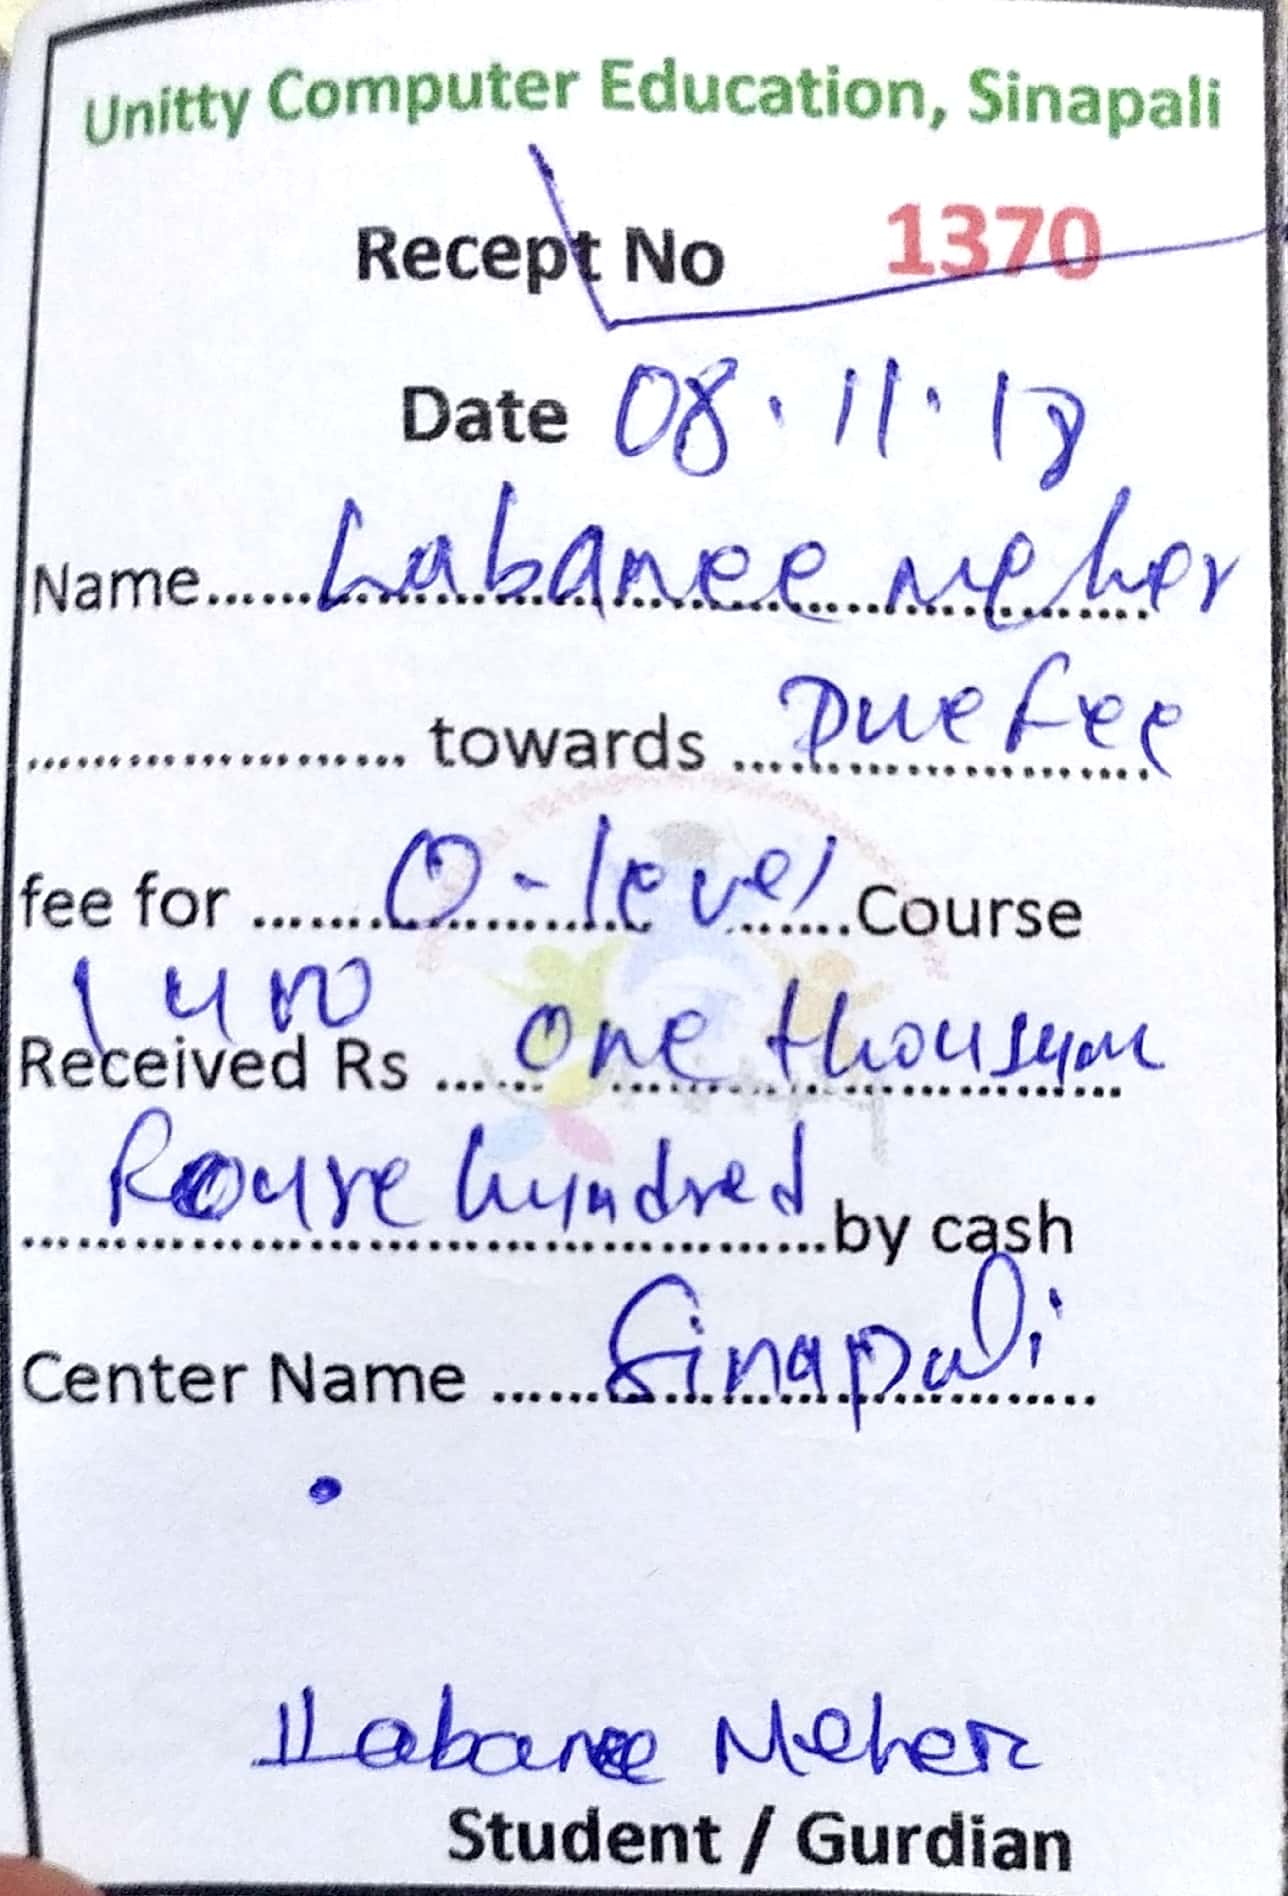 Unitty Computer Education, Sinapali
Recept No 1370
Date 08.11.18
Name......Labanee meher
..................... towards ...Due fee
fee for .......O-level.......Course
1400
Received Rs ......one thousand
foure hundred by cash
Center Name ......Sinapali
Labanee Meher
Student / Gurdian